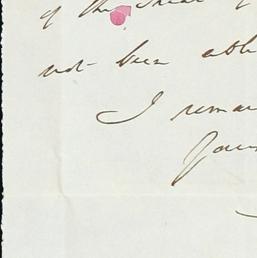 of the
not been able
I remai
Your